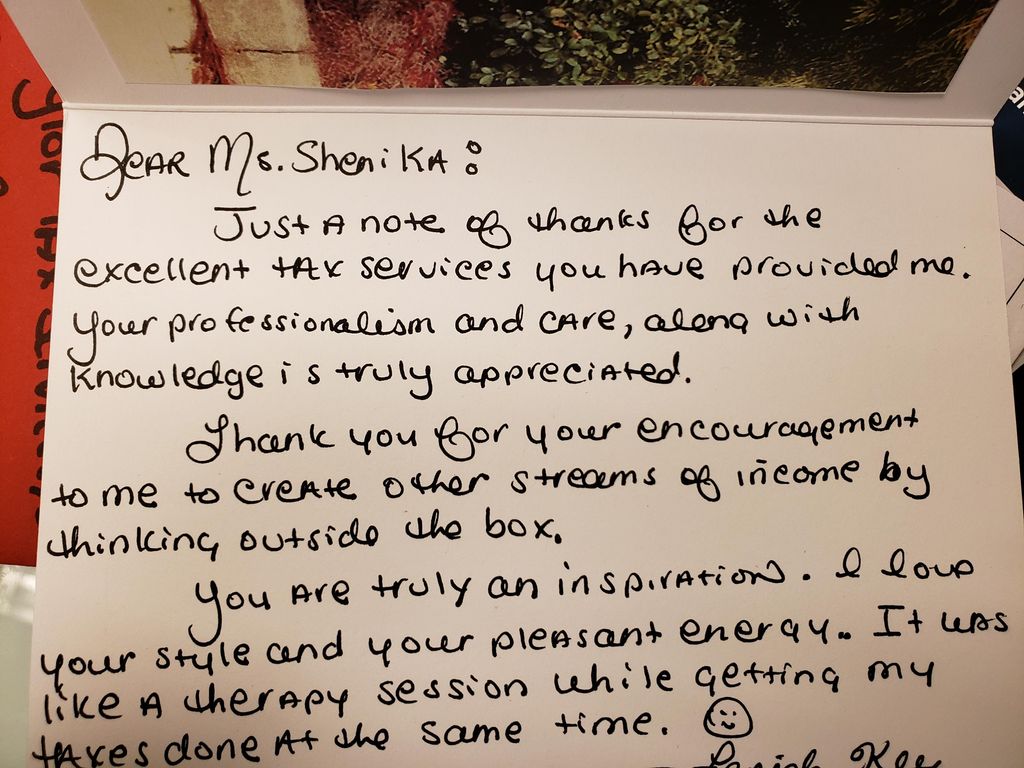 Dear Ms. Shenika:
Just a note of thanks for the
excellent tax services you have provided me.
Your professionalism and care, along with
knowledge is truly appreciated.
Thank you for your encouragement
to me to create other streams of income by
thinking outside the box.
You are truly an inspiration. I love
your style and your pleasant energy.. It was
like a therapy session while getting my
taxes done at the same time.